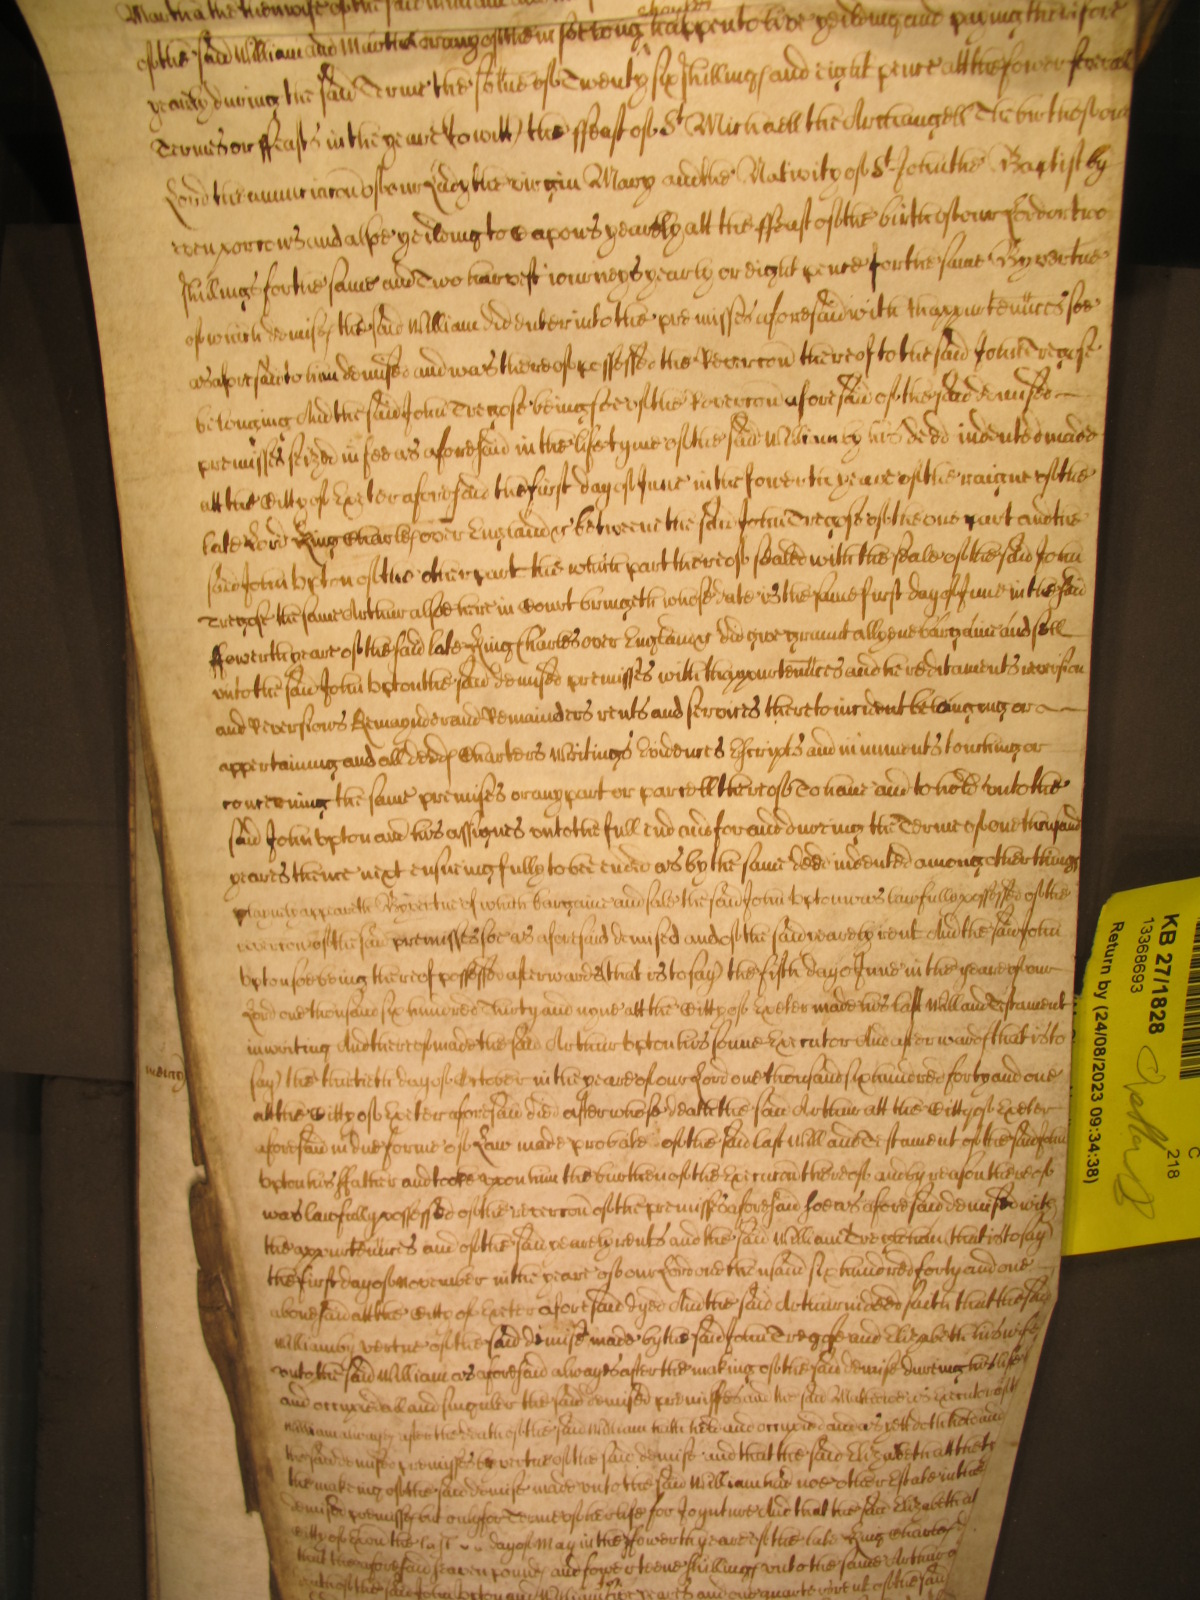 Martha the then wife of the said William and
chaunce
of the said William and Martha or any of them soe long happen to live yeilding and paying therefore
yearely during the said Terme the some of Twenty six shillings and eight pence att the fower severall
Termes or ffeasts in the yeare (to witt) the ffeast of St Michaell the Archangell The birth of our
Lord the annunciacon of our Lady the virgin Mary and the Nativity of St John the Baptist by
even porcons and alsoe yeilding two capons yearely att the ffeast of the birth of our Lord or two
shillings for the same and Two harvest iourneys yearly or eight pence for the same By vertue
of which demise the said William did enter into the premisses aforesaid with thappurtennces soe
as aforesaid to him demised and was thereof possessed the Revercon thereof to the said John Tregose
belonging And the said John Tregose being soe of the Revercon aforesaid of the said demised
premisses seized in fee as aforesaid in the life tyme of the said William by his deed indented made
att the Citty of Exeter aforesaid the first day of June in the fowerth yeare of the raigne of the
late Lord King Charles over England &c betweene the said John Tregose of the one part and the
said John Upton of the other part the which part thereof sealed with the seale of the said John
Tregose the same Arthur alsoe here in Court bringeth whose date is the same first day of June in the said
ffowerth yeare of the said late King Charles over England &c did give graunt allyene bargaine and sell
unto the said John Upton the said demised premisses with thappurtennces and hereditaments revercion
and Revercions Remaynder and Remainders rents and services thereto incident belonging or
appertaining and all deeds Charters Writings Evidences Escripts and miniments touching or
concerning the same premises or any part or parcell thereof To have and to hold unto the
said John Upton and his assignes unto the full end and for and during the Terme of one thousand
yeares thence next ensueing fully to bee ended as by the same deed indented among other things
playnely appeareth By vertue of which bargaine and sale the said John Upton was lawfully possessed of the
revercon of the said premisses soe as aforesaid demised and of the said yearely rent And the said John
Upton soe being thereof possessed afterwards (that is to say) the fifth day of June in the yeare of our
Lord one thousand six hundred Thirty and nyne att the Citty of Exeter made his last Will and Testament
in writing And thereof made the said Arthur Upton his sonne Executor And afterwards that is to
say) the thirtieth day of October in the yeare of our Lord one thousand six hundred forty and one
att the Citty of Exeter aforesaid died after whose death the said Arthur att the Citty of Exeter
aforesaid in due forme of Law made probate of the said last Will and Testament of the said John
Upton his ffather and tooke upon him the burthen of the Execucon thereof and by reason thereof
was lawfully possessed of the revercon of the premisses aforesaid soe as aforesaid demised with
the appurtennces and of the said yearely rents and the said William (that is to say)
the first day of November in the yeare of our Lord one thousand six hundred forty and one
abovesaid att the Citty of Exeter aforesaid dyed And the said Arthur indeed saith that the said
William by vertue of the said demise made by the said John Tregose and Elizabeth his wife
unto the said William as aforesaid alwayes after the making of the said demise dureing his life
and occupied all and singuler the said demised premisses and the said as Executor of the
William alwayes after the death of the said William hath held and occupied and as yett doth hold and
the said demised premisses by vertue of the said demise and that the said Elizabeth att the tyme
the making of the said demise made unto the said William had noe other Estate in the
demised premisses but only for Terme of her life for Joynture And that the said Elizabeth att
Citty of the last day of May in the ffowerth yeare of the late King Charles
that the aforesaid seaven pounds and fowerteene shillings unto the same Arthur
rent of the said John Upton and William yeares and one quarter rent of the said
KB 27/1828
13368693
C
218
Return by (24/08/2023 09:34:38)